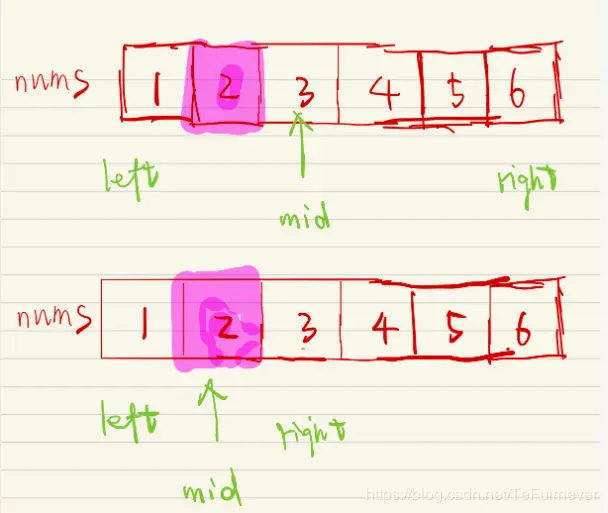 nums 1 2 3 4 5 6
left right
mid
nums 1 2 3 4 5 6
left right
mid
https://blog.csdn.net/TeFuirnever